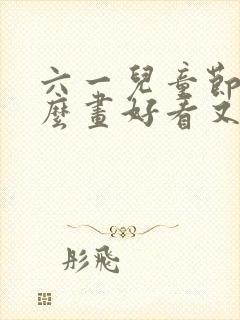 六一兒童節
麼畫好看又
彤飛